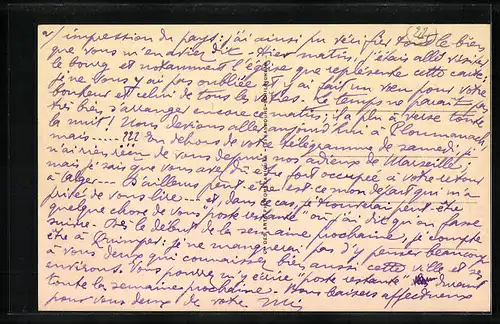 2/ impression du pays: j'ai ainsi pu vérifier tout le bien
que vous m'en aviez dit. Hier matin, j'étais allé visiter
le bourg et notamment l'église que représente cette carte;
je ne vous y ai pas oubliée et j'ai fait un vœu pour votre
bonheur et celui de tous les vôtres. Le temps ne paraît pas
très bien s'arranger encore ce matin; il a plu à verse toute
la nuit! Nous devions aller aujourd'hui à Ploumanach,
mais .... ??? En dehors de votre télégramme de samedi, je
n'ai rien de vous depuis nos adieux de Marseille;
mais je sais que vous avez dû être fort occupée à votre retour
à Alger... D'ailleurs peut-être est-ce mon départ qui m'a
privé de vous lire... et, dans ce cas, je trouverai peut-être
quelque chose de vous "poste restante" où j'ai dit qu'on fasse
suivre. Dès le début de la semaine prochaine, je compte
être à Quimper; je ne manquerai pas d'y penser beaucoup
à vous deux qui connaissez bien aussi cette ville et ses
environs. Vous pourrez m'y écrire "poste restante" durant
toute la semaine prochaine. Bons baisers affectueux
pour vous deux de votre